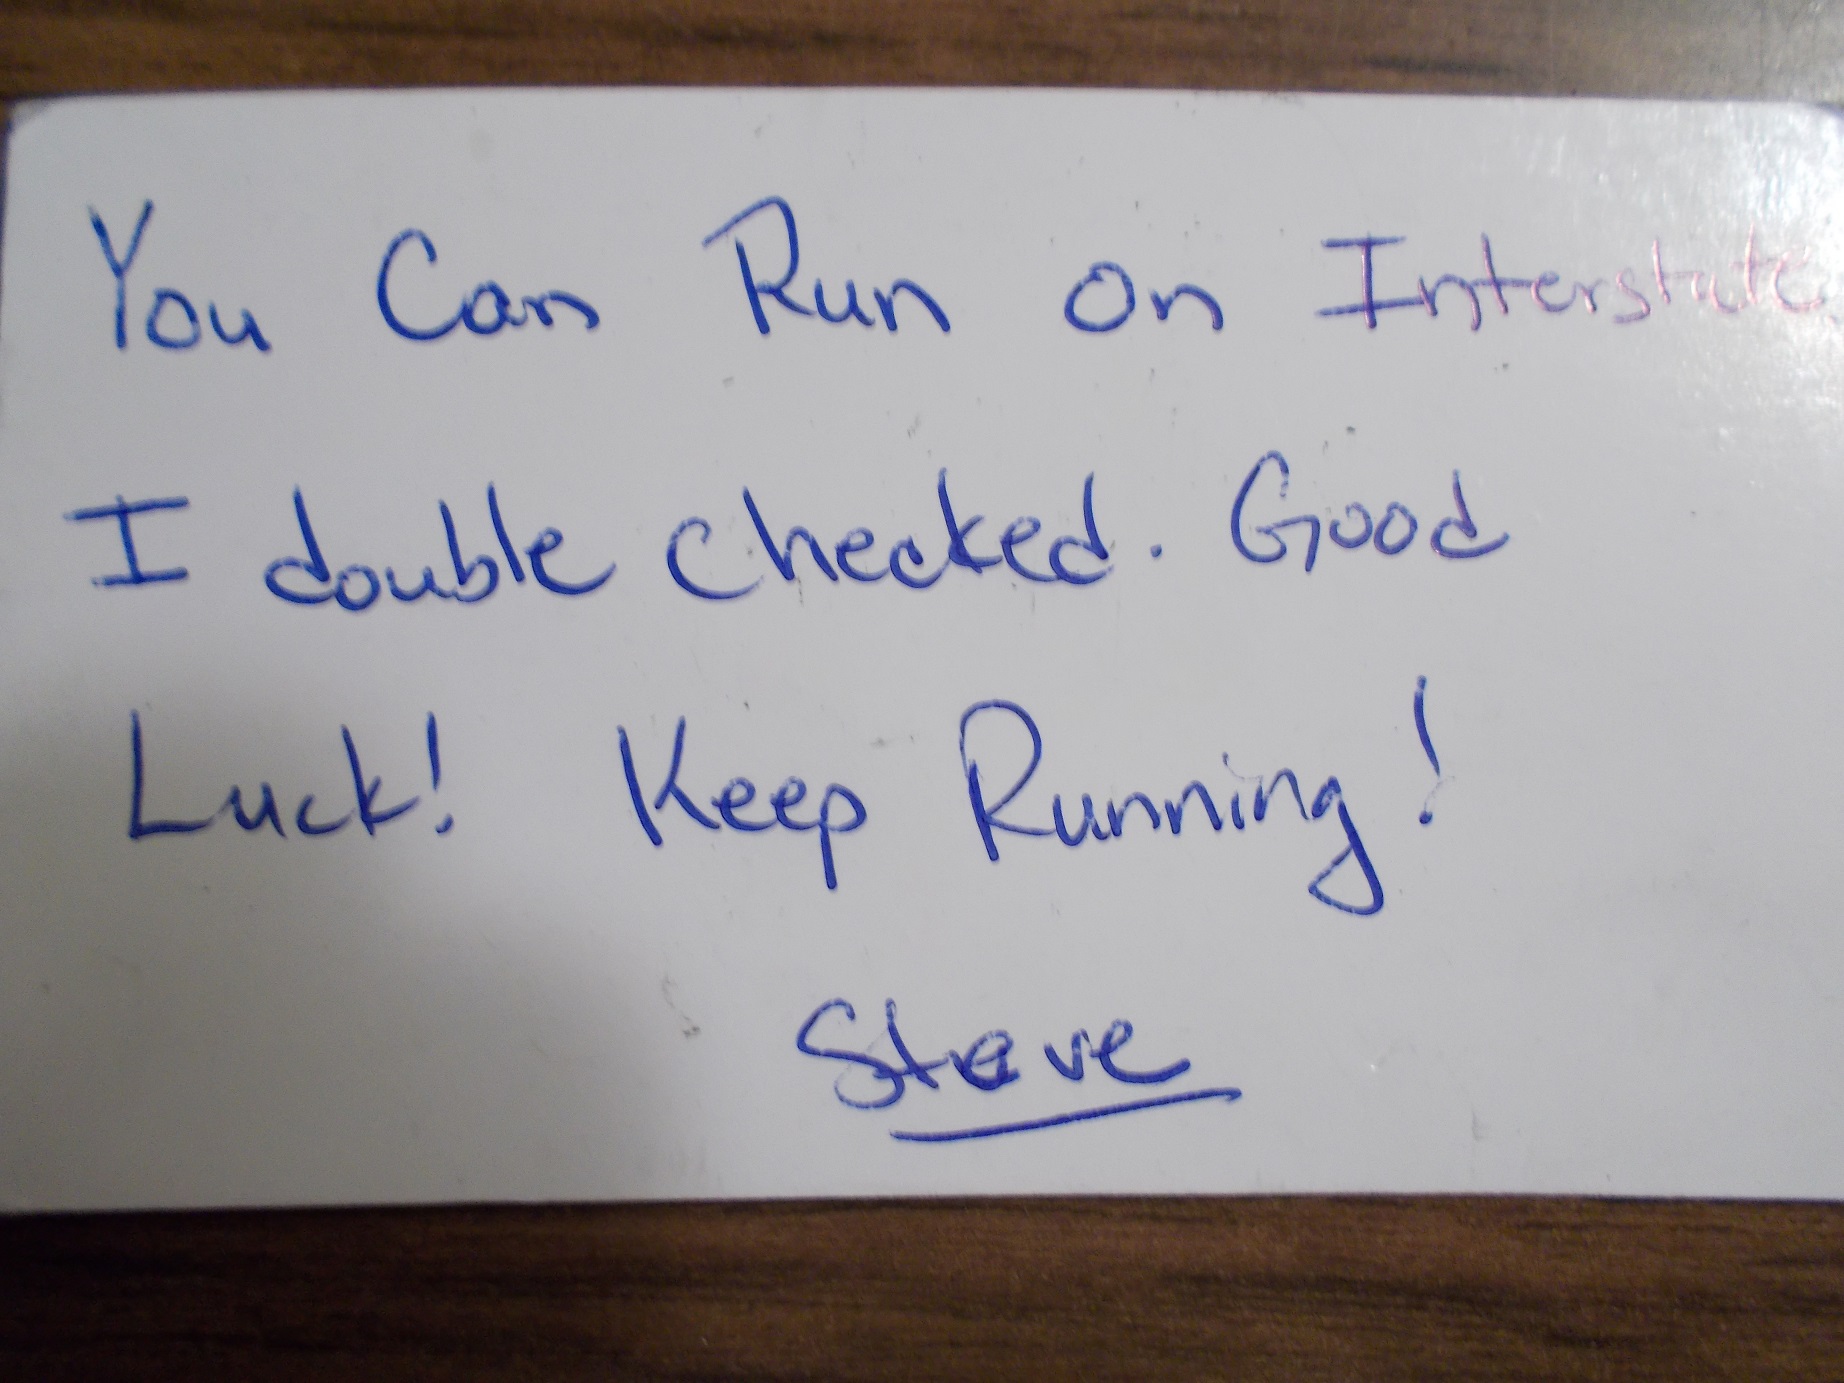 You Can Run on Interstate.
I double checked. Good
Luck! Keep Running!
Steve